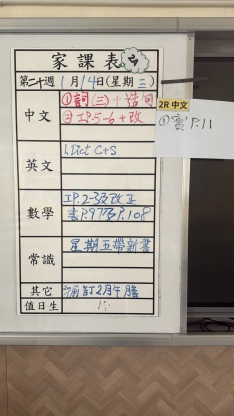 家課表
第二十週 1月14日(星期三)
2R 中文
① 實 P.11
中文
①詞(三)+造句
② 工P.5-6+改
英文
1. Dict C+S
數學
工P.2-3及改正
書P.97及P.108
常識
星期五帶新書
其它
訂2月午膳
值日生